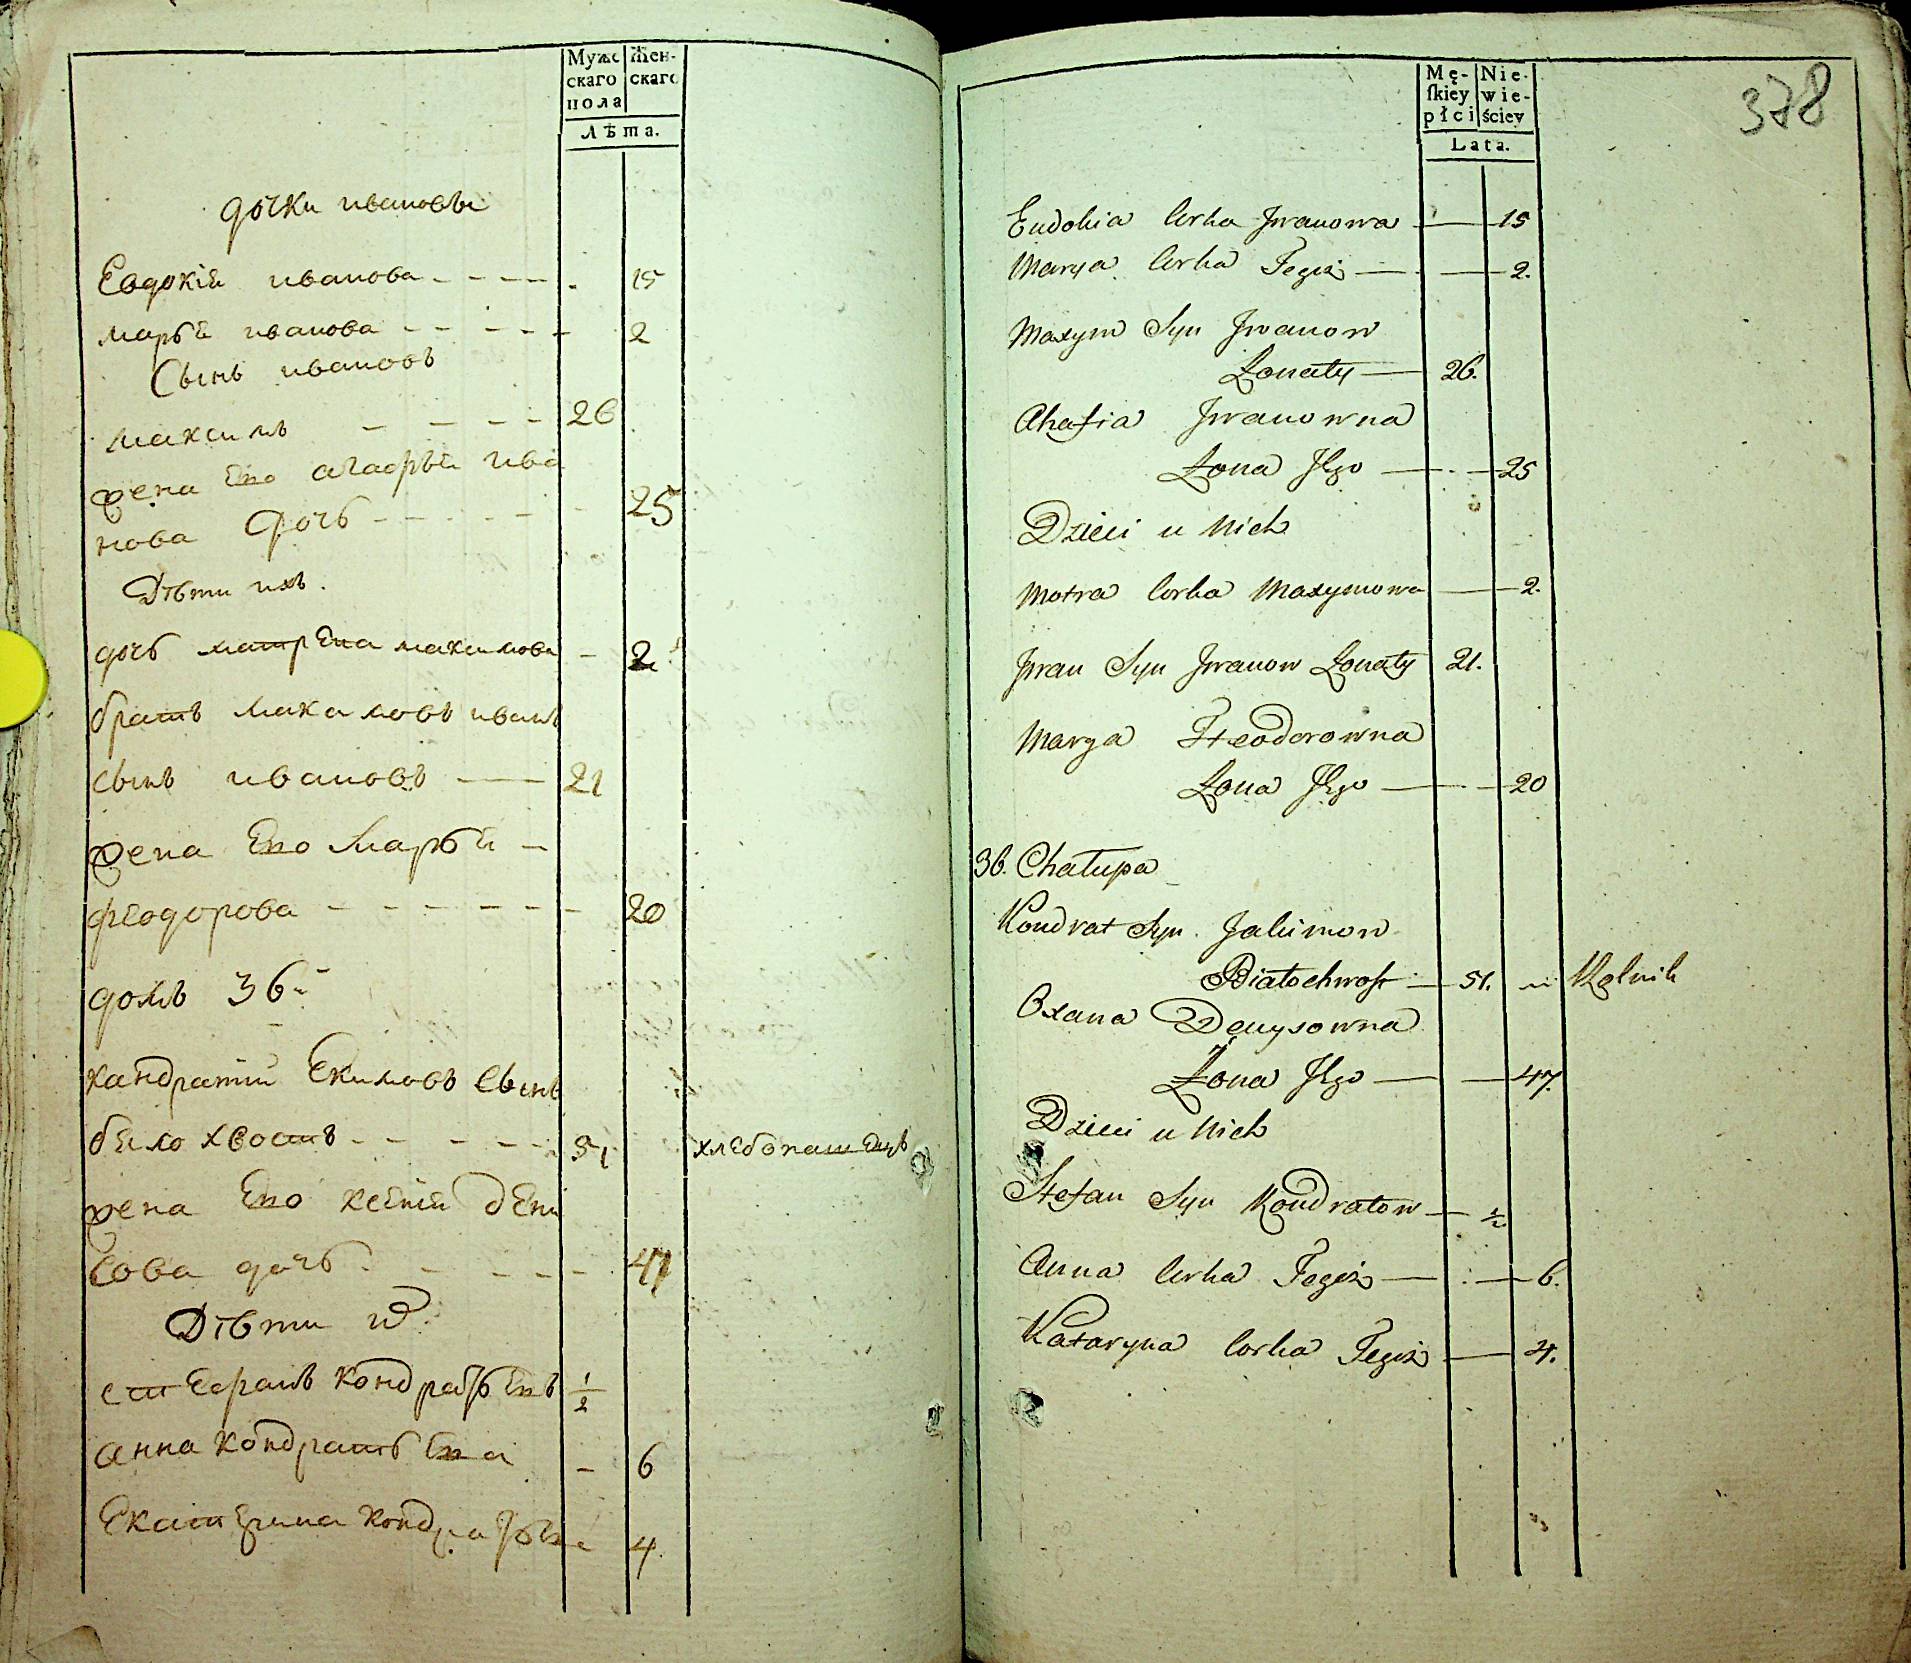 Мужс Жен-
скаго скаго
пола
Лѣта.
дочки ивановы
Евдокія иванова - - - - - 15
марья иванова - - - - - 2
Сынъ ивановъ
максимъ - - - - 26
жена его агафья ива
нова дочь - - - - - - 25
Дѣти ихъ.
дочь матрена максимова - 2
братъ максимовъ иванъ
сынъ ивановъ — 21
жена его Марья -
феодорова - - - - - - - 20
домъ 36й
кандратий Екимовъ сынъ
било хвостъ - - - - - 51 хлебопашецъ
жена его ксения дени
сова дочь - - - - - 47
Дѣти их.
стефанъ кондратьевъ 1/2
анна кондратьева - 6
Екатерина кондратьева 4
378
Mę- Nie-
ſkiey wie-
płci ściey
Lata.
Eudokia Corka Jwanowa — 15
Marya Corka Tegiż — — 2.
Maxym Syn Jwanow
Łonaty — 26.
Ahafia Jwanowna
Żona Jego — - — 25
Dzieci u Nich
Motra Corka Maxymowa — 2.
Jwan Syn Jwanow Łonaty 21.
Marya Fteodorowna
Żona Jego — - — 20
36. Chałupa
Kondrat Syn Jakimow
Białochwost — 51. Rolnik
Oxana Denysowna
Żona Jego — — 47.
Dzieci u Nich
Stefan Syn Kondratow — 1/2
Anna Corka Tegoż — - — 6.
Kataryna Corka Tegoż — 4.